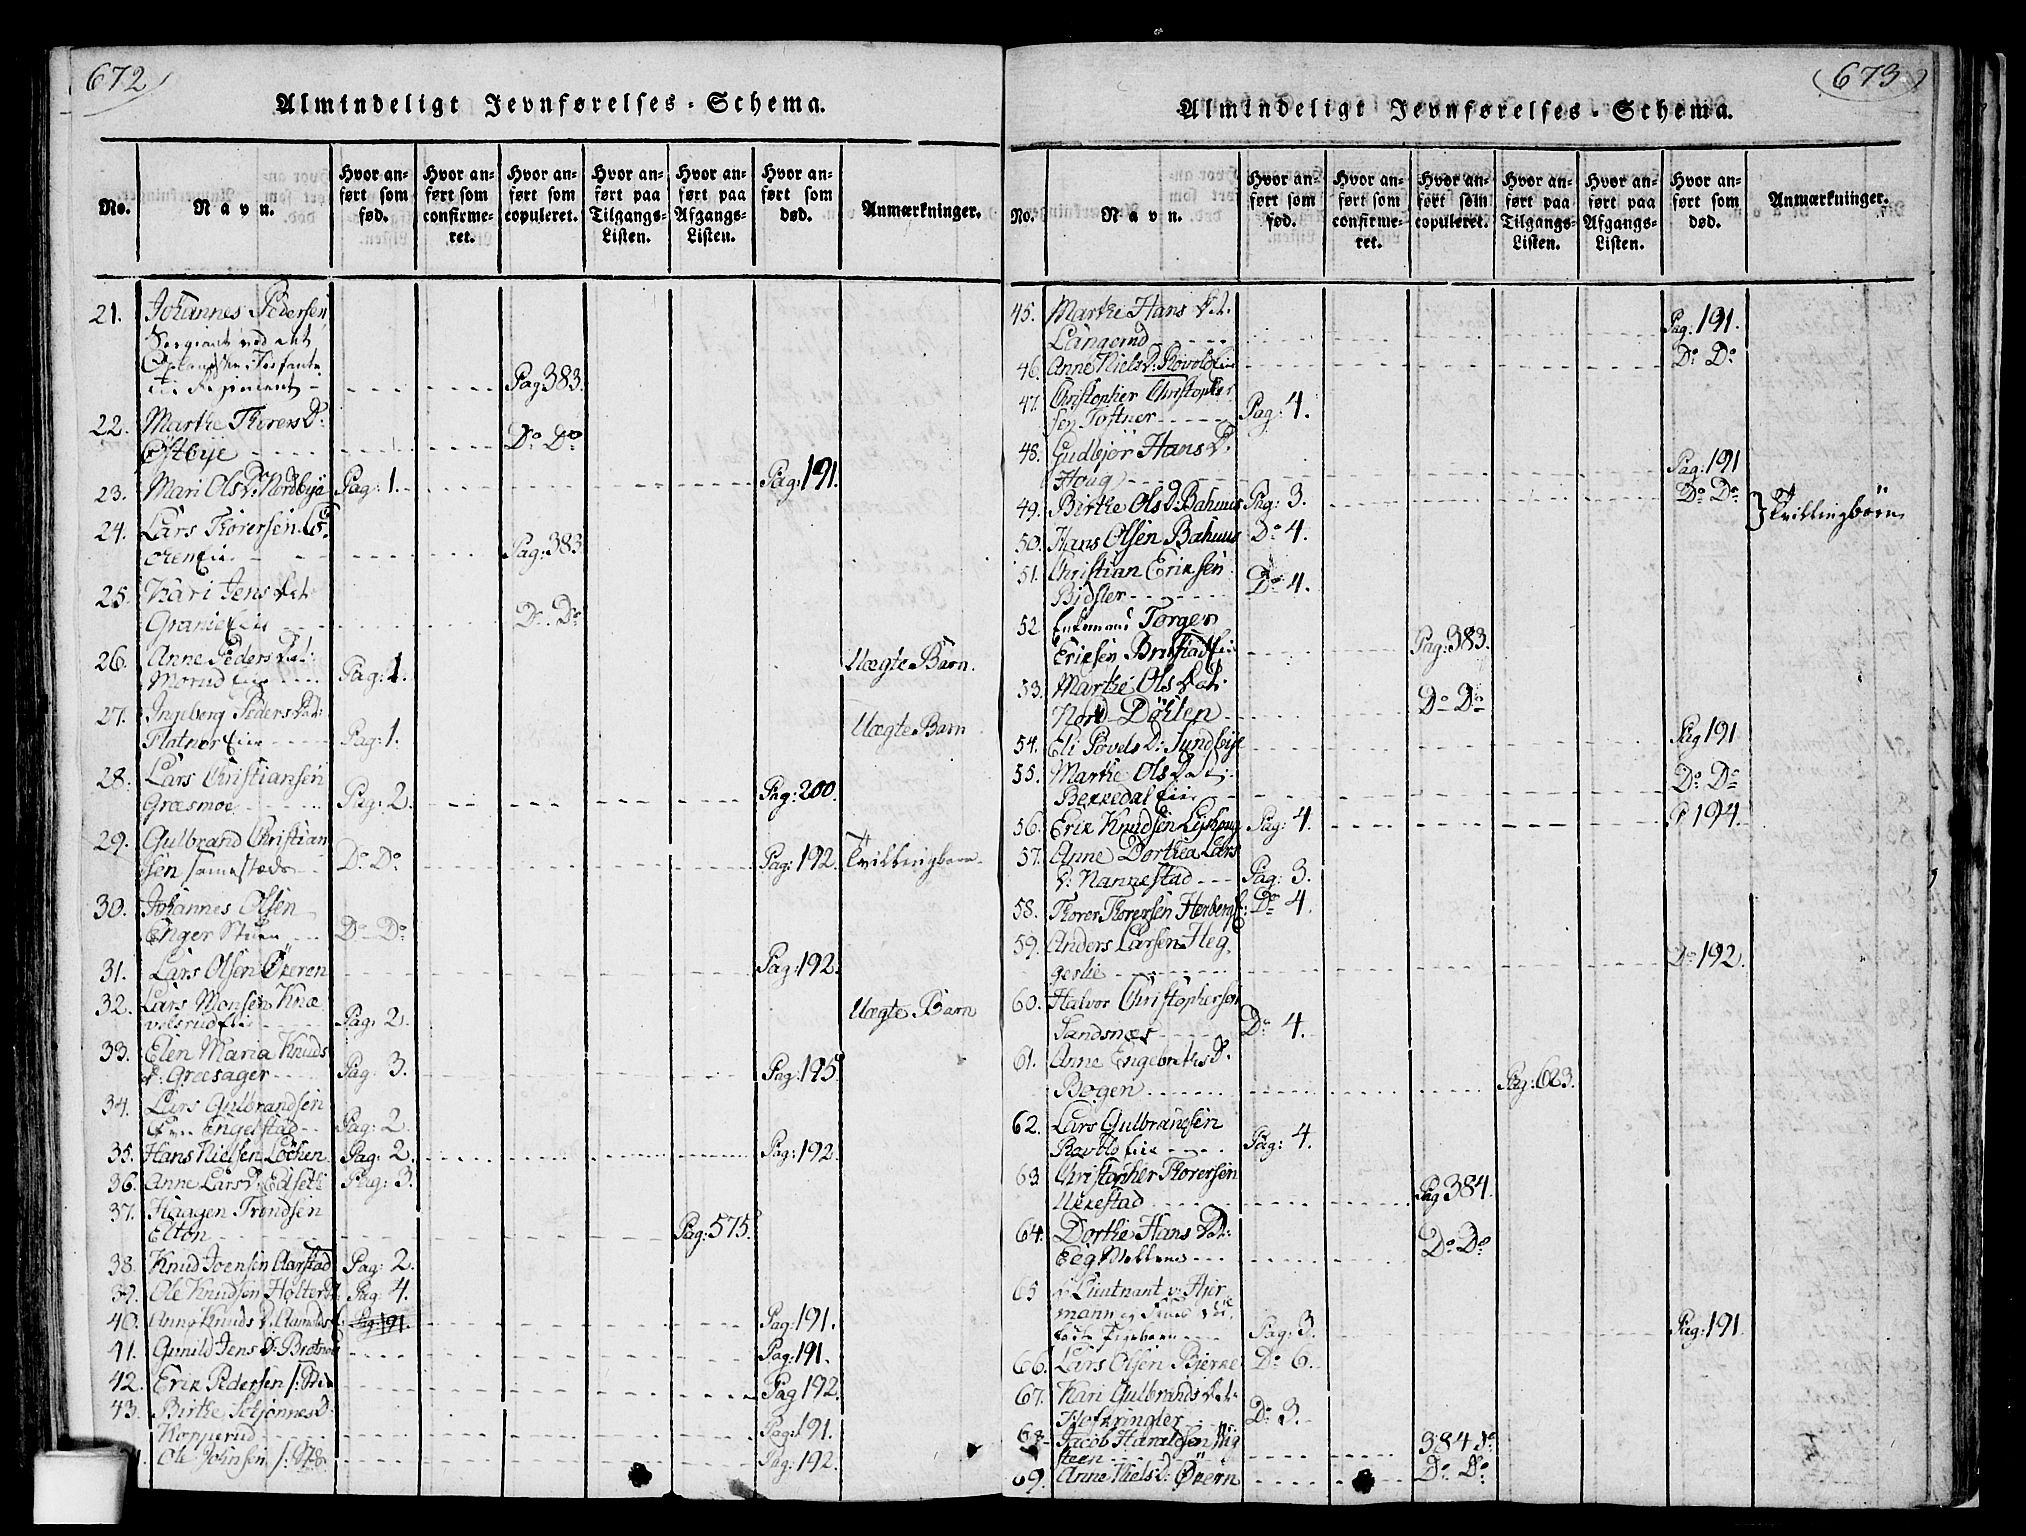 672
Almindeligt Jevnførelses-Schema.
No.
Navn.
Hvor anført som fød.
Hvor anført som confirmeret.
Hvor anført som copuleret.
Hvor anført paa Tilgangs-Listen.
Hvor anført paa Afgangs-Listen.
Hvor anført som død.
Anmærkninger.
21. Johannes Pedersen
Sergiant ved det
Regiment - Pag 383.
22. Marthe Thorers D:
Østbye Do Do
23. Mari Ols D: Nordbye Pag: 1. Pag: 191.
24. Lars Thorersen
Pag: 383
25. Kari Jens Dat:
Do. Do
26. Anne Peders Dat: Uægte Barn.
Morud Eie Pag: 1.
27. Ingeborg Peders Dat: Uægte Barn
Flatner Eie Pag: 1.
28. Lars Christiansen
Græsmoe Pag: 2. Pag: 200.
29. Gulbrand Christian
sen samestæds Do. Do Pag: 192. Tvillingbørn
30. Johannes Olsen
Enger Stuen Do Do
31. Lars Olsen Økeren Pag: 192.
32. Lars Monsen Knæ
velsrud Eie Pag: 2. Uægte Barn
33. Elen Maria Knuds
D: Greesager Pag. 3. Pag: 195
34. Lars Gulbrandsen
Engelstad Pag: 2.
35. Hans Nielsen Løken Pag: 2. Pag: 192.
36. Anne Lars D: Pag: 3.
37. Haagen Trondsen
Elton Pag: 575.
38. Knud Joensen Aarstad Pag: 2.
39. Ole Knudsen Holter Pag: 4.
40. Anne Knuds D. Pag: 191. Pag: 191.
41. Gunild Jens D: Pag: 191.
42. Erik Pedersen Pag 192.
43. Birthe D:
Kopperud Pag: 191.
Ole Johnsen Pag: 192.
673
Almindeligt Jevnførelses-Schema.
No.
Navn.
Hvor anført som fød.
Hvor anført som confirmeret.
Hvor anført som copuleret.
Hvor anført paa Tilgangs-Listen.
Hvor anført paa Afgangs-Listen.
Hvor anført som død.
Anmærkninger.
45. Marthe Hans Dat.
Langerud Pag: 191.
46. Anne Niels D: Do Do
47. Christopher Christopher
sen Toftner Pag: 4.
48. Gudbjør Hans D:
Houg Pag: 191
49. Birthe Ols D: Bahuus Pag: 3. Do Do
Tvillingbørn
50. Hans Olsen Bahuus Do 4.
51. Christian Eriksen
Do 4.
52 Enkemand Torger
Eriksen Pag: 383.
53. Marthe Ols Dat:
Nord Döhlen Do Do
54. Eli Povels D: Sundbye Pag 191
55. Marthe Ols Dat:
Bekkedal Eie Do: Do
56. Erik Knudsen Pag: 4. P 194.
57. Anne Dorthea Lars
D: Nannestad Pag: 3.
58. Thorer Thorersen Do 4.
59. Anders Larsen Heg
gerlie Do 192.
60. Halvor Christophersen
Sandsnæs Do 4.
61. Anne Engebrethsd.
Bogen Pag: 623.
62. Lars Gulbrandsen
Eie Pag: 4.
63 Christopher Thorersen
Ukkestad Pag 384.
64. Dorthe Hans Dat:
Do Do
65 Lieutnant v: Hjer
mann og
Pag. 3. Pag: 191.
66. Lars Olsen Bjerke Do 6.
67. Kari Gulbrands Dat:
Do 3.
68. Jacob Haraldsen
steen 384
69. Anne Niels D: Økern Do Do